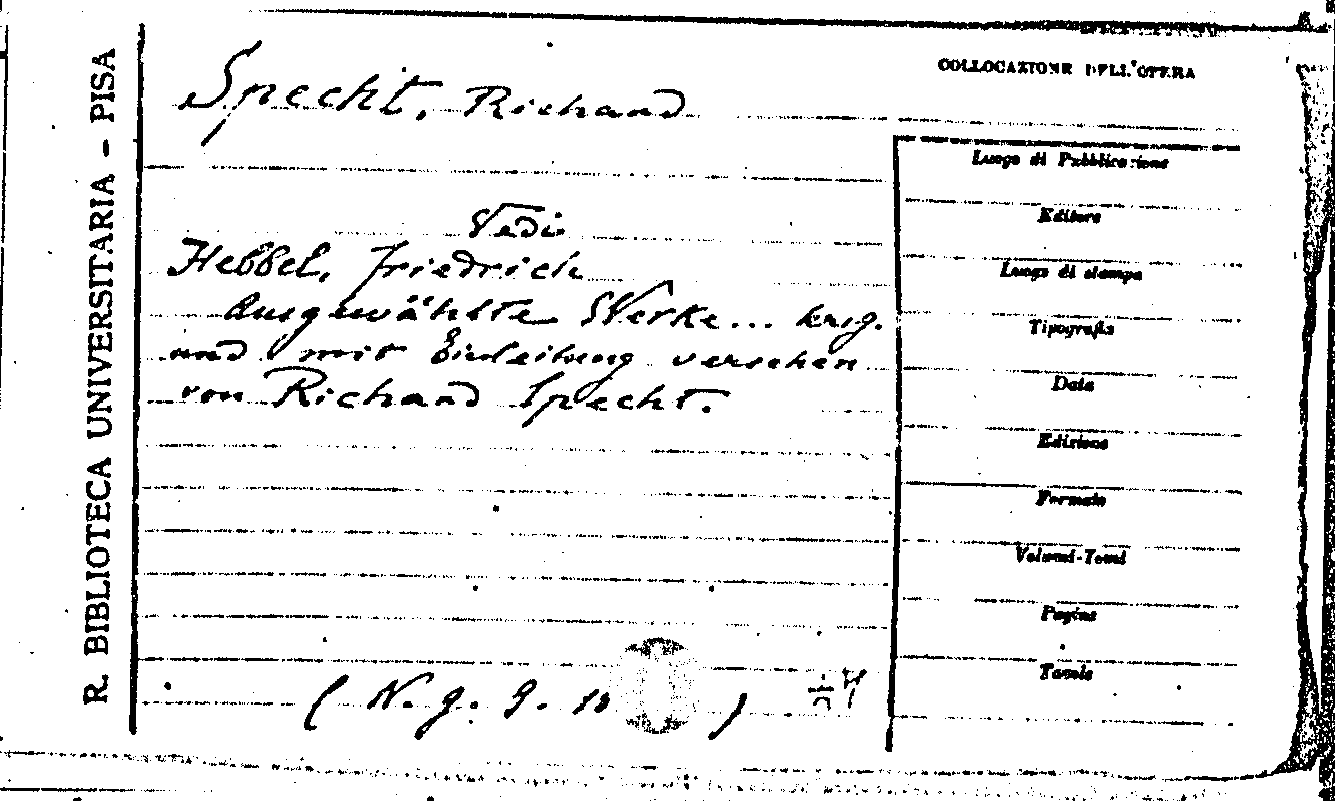 R. BIBLIOTECA UNIVERSITARIA - PISA
COLLOCAZIONE DELL'OPERA
Specht, Richard
Vedi
Hebbel, Friedrich
Ausgewählte Werke... hrsg.
und mit Einleitung versehen
von Richard Specht.
Luogo di Pubblicazione
Editore
Luogo di stampa
Tipografia
Data
Edizione
Formato
Volumi-Tomi
Pagine
Tavole
( N. g. 9. 10 )